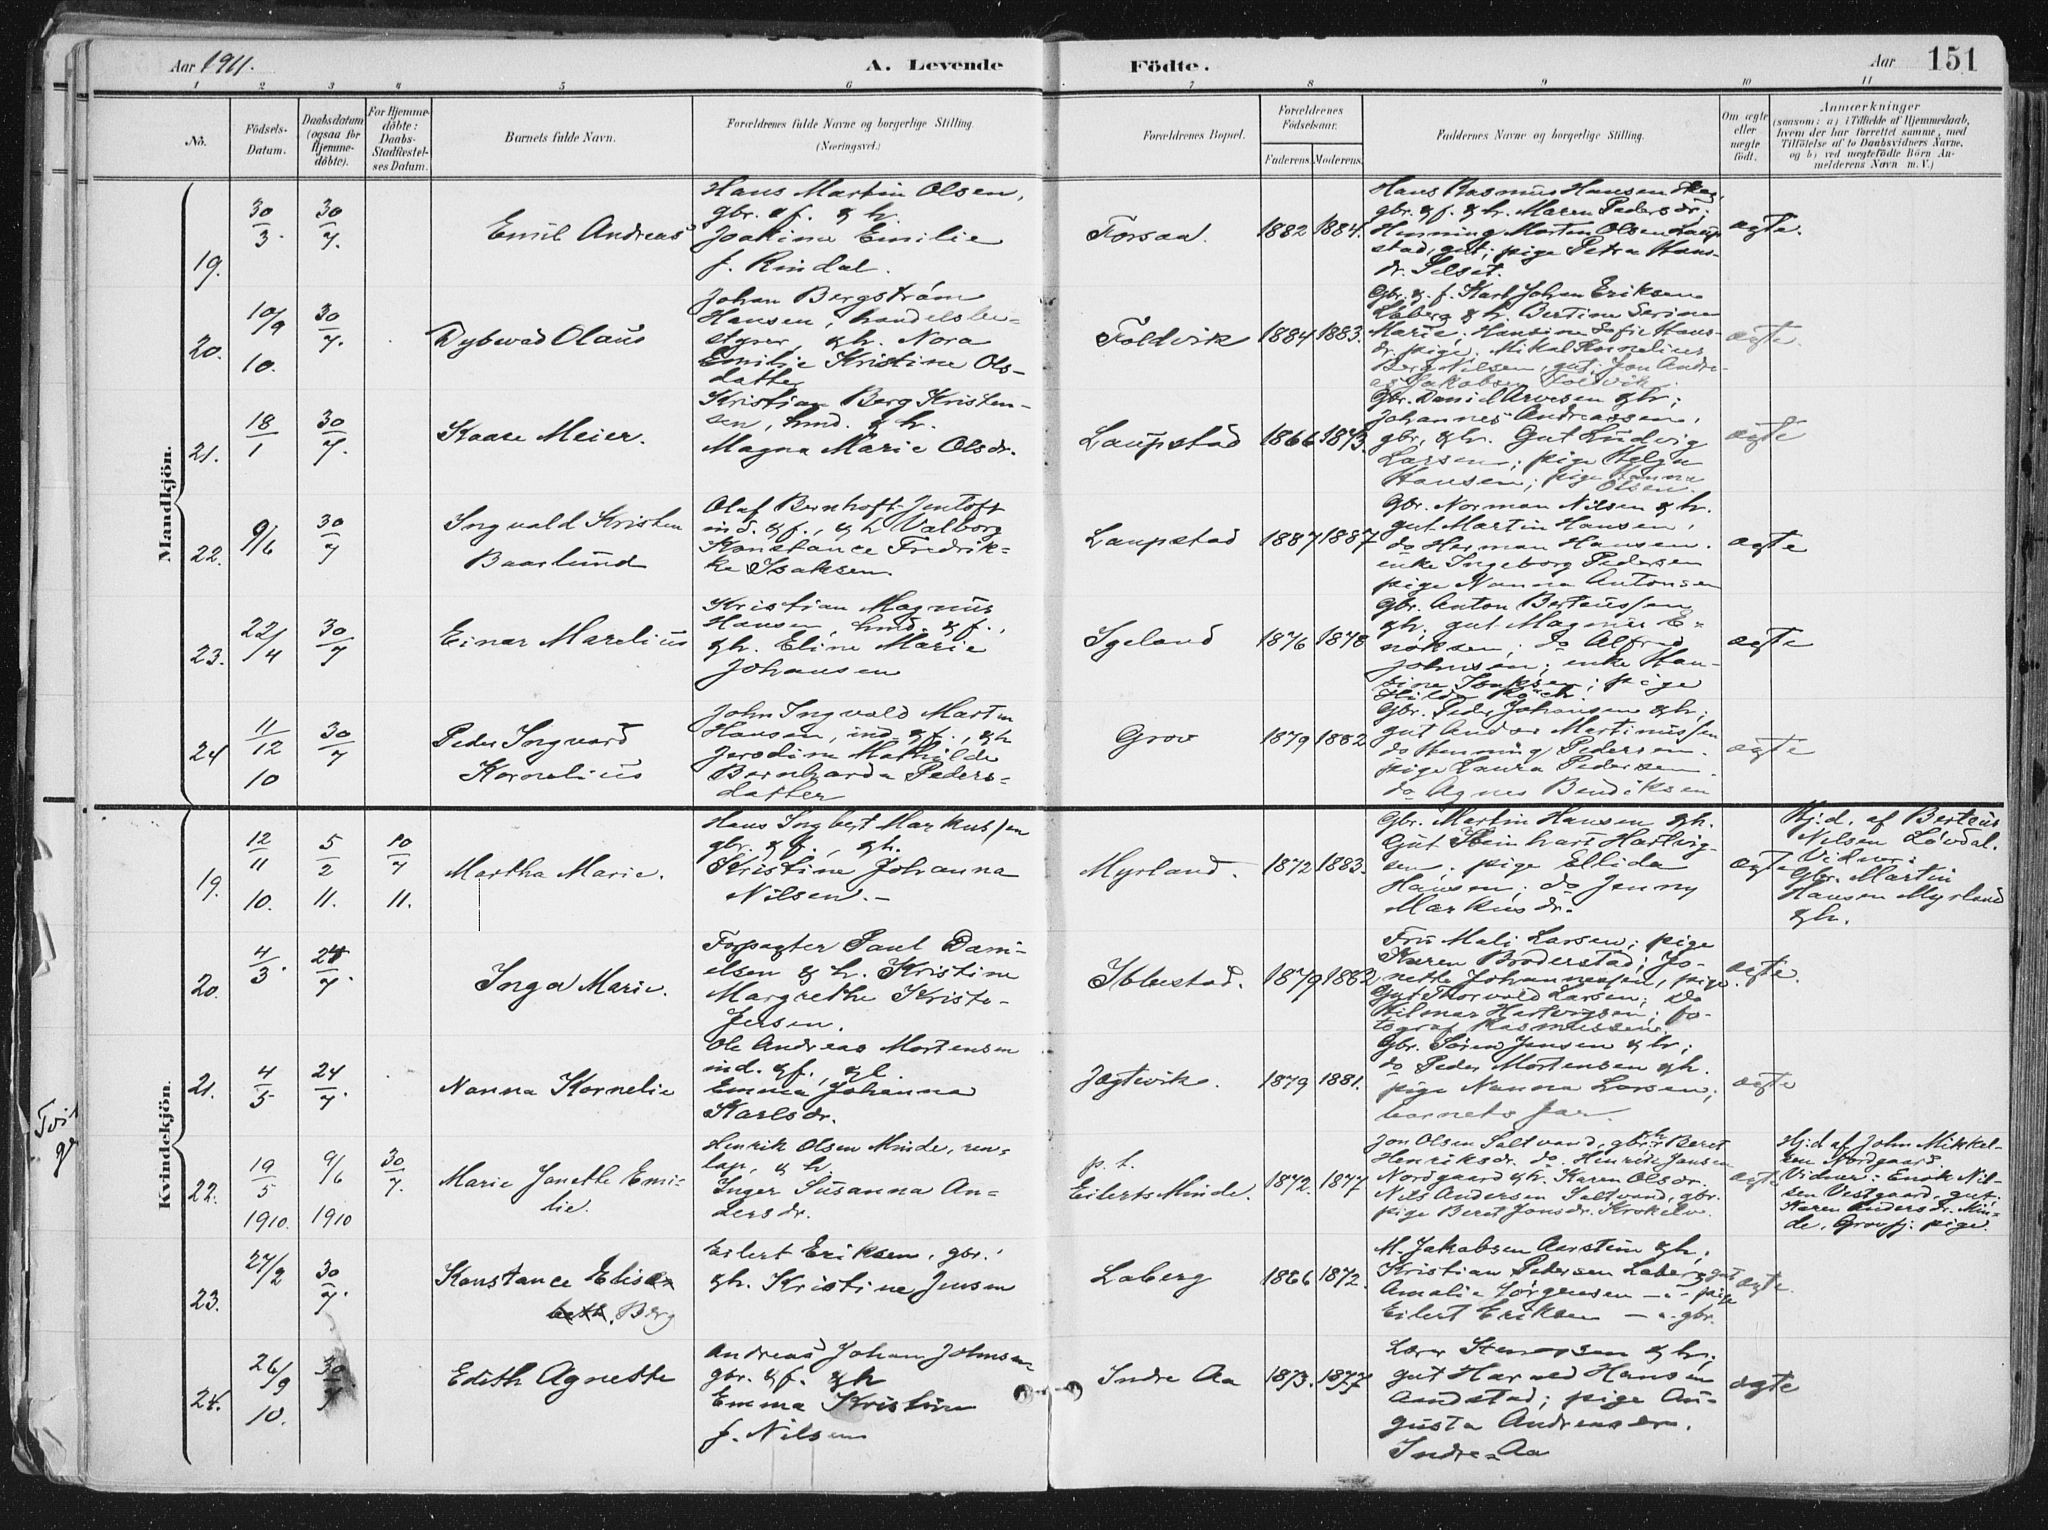 Aar 1911.
A. Levende
Födte.
Aar
151
1 2 3 4 5 6 7 8 9 10 11
No.
Födsels-
Datum.
Daabsdatum
(ogsaa for
Hjemme-
döbte).
For Hjemme-
döbte:
Daabs-
Stadfestel-
ses Datum.
Barnets fulde Navn.
Forældrenes fulde Navne og borgerlige Stilling.
(Næringsvei.)
Forældrenes Bopæl.
Forældrenes
Födselsaar.
Faderens. Moderens.
Faddernes Navne og borgerlige Stilling.
Om ægte
eller
uægte
födt.
Anmærkninger
(saasom: a) i Tilfælde af Hjemmedaab,
hvem der har forrettet samme, med
Tilföielse af to Daabsvidners Navne,
og b) ved uægtefödte Börn An-
melderens Navn m. V.)
Mandkjön.
19.
30/3.
30/7.
Emil Andreas
Hans Martin Olsen,
gbr. & f. & h.
Joakime Emilie
f. Rindal.
Forsaa.
1882 1884.
Hans Rasmus Hansen
gbr. & f. & h. Maren Pedersdr;
Henning Morten Olsen Laup-
stad, gut; pige Petra Hans-
dr. Selset.
ægte.
20.
10/9
10.
30/7.
Dybwad Olaus
Johan Bergstrøm
Hansen, handelsbe-
styrer, & h. Nora
Emilie Kristine Ols-
datter
Foldvik
1884 1883.
Gbr. & f. Karl Johan Eriksen
Laberg & h. Bertine Serine
Marie; Hansine Sofie Hans-
dr. pige; Mikal Kornelius
Berg Nilsen, gut; Jon Andre-
as Jakobsen Foldvik.
ægte.
21.
18/1
30/7.
Kaare Meier.
Kristian Berg Kristen-
sen, hmd. & h.
Magna Marie Olsdr.
Laupstad
1866 1873.
Gbr. Daniel Arvesen & h;
Johannes Andreassen,
gbr, & h. Gut Ludvig
Larsen; pige Helga
Hansen; pige Hanna
Olsen.
ægte
22.
9/6
30/7
Ingvald Kristen
Baarlund
Olaf Bernhoft Jentoft
ind. & f., & h Valborg
Konstance Fredrik-
ke Isaksen.
Laupstad
1887 1887
Gbr. Norman Nilsen & h.
gut Martin Hansen,
do Herman Hansen.
enke Ingeborg Pedersen
pige Nanna Antonsen
ægte
23.
22/4
30/7
Einar Marelius
Kristian Magnus
Hansen, hmd. & f.,
& h. Eline Marie
Johansen
Igeland
1876 1878
Gbr. Anton Berteussen
& h, gut Magnus E-
noksen; do Alfred
Johnsen; enke Han-
sine Isaksen; pige
Hilda Koch.
ægte
24
11/12
10
30/7
Peder Ingvard
Kornelius
John Ingvald Martin
Hansen, ind. & f., & h
Jerodina Mathilde
Bernharda Peders-
datter
Grov
1879 1882
Gbr. Peder Johansen & h;
gut Andor Martinussen
do Henning Pedersen.
pige Laura Pedersen.
do Agnes Bendiksen
ægte
Kvindekjön.
19.
12/11
10.
5/2
11.
10/7
11.
Martha Marie.
Hans Ingbert Markussen
gbr. & f., & h.
Kristine Johanna
Nilsen.-
Myrland.
1872 1883.
Gbr. Martin Hansen & h.
Gut Steinhart Hartvig-
sen; pige Ellida
Hansen; do Jenny
Markusdr.
ægte
Hj.d. af Berteus
Nilsen Løvdal.
Vidner:
Gbr. Martin
Hansen Myrland
& h.
20.
4/3.
24/7.
Inga Marie.
Forpagter Paul Dani-
elsen & h. Kristine
Margrethe Kristo-
fersen.
Ibbestad.
1879 1882
Fru Mali Larsen; pige
Karen Broderstad; Jo-
nette Johannessen, pige.
Gut Thorvald Larsen; do
Hilmar Hartvigsen; fo-
tograf Rasmussen.
ægte.
21.
4/5
24/7.
Nanna Kornelie
Ole Andreas Mortensen
ind. & f., & h.
Emma Johanna
Karlsdr.
Jægtevik.
1879 1881.
Gbr. Søren Jensen & h;
do Peder Mortensen & h.
pige Nanna Larsen;
barnets far
ægte
22.
19/5
1910.
9/6
1910
30/7.
Marie Jonette Emi-
lie.
Henrik Olsen Minde, ren-
lap, & h.
Inger Susanna An-
dersdr.
p. t.
Eilerts Minde.
1872. 1877
Jon Olsen Saltvand, gbr, & h Beret
Henriksdr. do Henrik Jansen
Nordgaard & h. Karen Olsdr.
Nils Andersen Saltvand, gbr.
pige Beret Jonsdr. Krokelv.
ægte
Hj.d af John Mikkel-
sen Nordgaard
Vidner: Enok Nil-
sen Vestgaard, gut;
Karen Andersdr. Min-
de, Grovfj. pige.
23.
27/2
30/7
Konstance Elisa-
beth. Berg
Eilert Eriksen, gbr.
& h. Kristine Jensen
Laberg
1866 1872.
M. Jakobsen Aarstein & h;
Kristian Pedersen Laberg gut
Amalie Jørgensen - " - pige
Eilert Eriksen - " - gbr.
ægte.
24.
26/9
10.
30/7
Edith Agnette
Andreas Johan Johnsen
gbr. & f. & h
Emma Kristine
f. Nilsen
Indre Aa
1873. 1877
Lærer Stenersen & h;
gut Harald Hansen
Aandstad; pige Au-
gusta Andreasdr.
Indre Aa
ægte